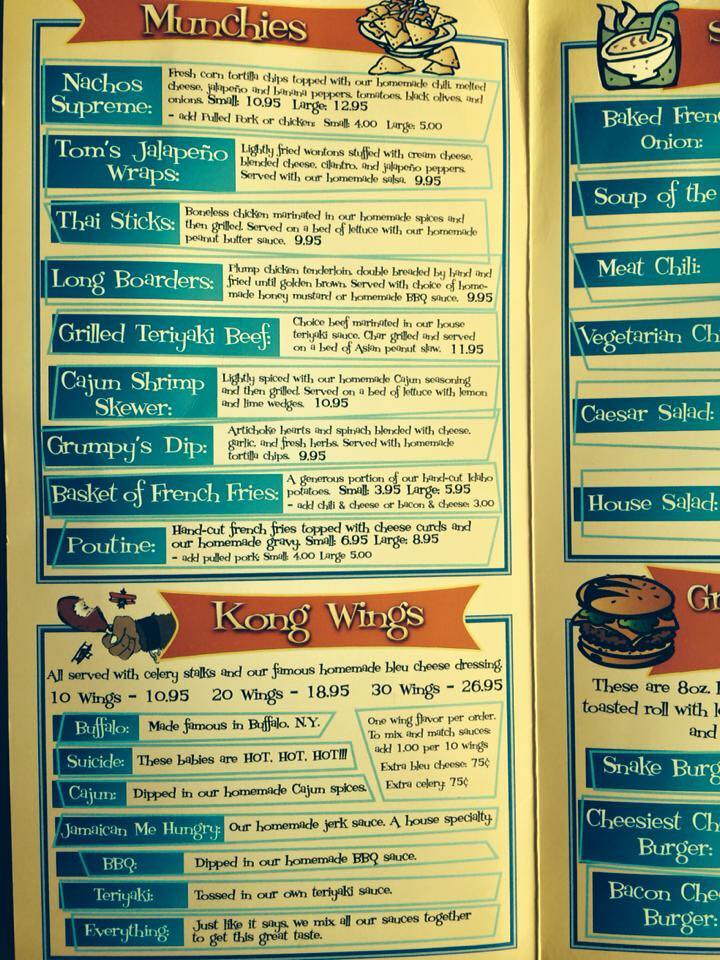 Munchies
Nachos
Supreme:
Fresh corn tortilla chips topped with our homemade chili, melted
cheese, jalapeño and banana peppers, tomatoes, black olives, and
onions. Small: 10.95 Large: 12.95
- add Pulled Pork or chicken: Small: 4.00 Large: 5.00
Tom's Jalapeño
Wraps:
Lightly fried wontons stuffed with cream cheese,
blended cheese, cilantro, and jalapeño peppers.
Served with our homemade salsa. 9.95
Thai Sticks:
Boneless chicken marinated in our homemade spices and
then grilled. Served on a bed of lettuce with our homemade
peanut butter sauce. 9.95
Long Boarders:
Plump chicken tenderloin, double breaded by hand and
fried until golden brown. Served with choice of home-
made honey mustard or homemade BBQ sauce. 9.95
Grilled Teriyaki Beef:
Choice beef marinated in our house
teriyaki sauce. Char grilled and served
on a bed of Asian peanut slaw. 11.95
Cajun Shrimp
Skewer:
Lightly spiced with our homemade Cajun seasoning
and then grilled. Served on a bed of lettuce with lemon
and lime wedges. 10.95
Grumpy's Dip:
Artichoke hearts and spinach blended with cheese,
garlic, and fresh herbs. Served with homemade
tortilla chips. 9.95
Basket of French Fries:
A generous portion of our hand-cut Idaho
potatoes. Small: 3.95 Large: 5.95
- add chili & cheese or bacon & cheese: 3.00
Poutine:
Hand-cut french fries topped with cheese curds and
our homemade gravy. Small: 6.95 Large: 8.95
- add pulled pork: Small: 4.00 Large 5.00
Kong Wings
All served with celery stalks and our famous homemade bleu cheese dressing.
10 Wings - 10.95 20 Wings - 18.95 30 Wings - 26.95
Buffalo: Made famous in Buffalo, N.Y.
Suicide: These babies are HOT, HOT, HOT!!!
Cajun: Dipped in our homemade Cajun spices.
One wing flavor per order.
To mix and match sauces:
add 1.00 per 10 wings
Extra bleu cheese: 75¢
Extra celery: 75¢
Jamaican Me Hungry: Our homemade jerk sauce. A house specialty.
BBQ: Dipped in our homemade BBQ sauce.
Teriyaki: Tossed in our own teriyaki sauce.
Everything: Just like it says, we mix all our sauces together
to get this great taste.
S
Baked Fren
Onion:
Soup of the
Meat Chili:
Vegetarian Ch
Caesar Salad:
House Salad:
Gr
These are 8oz.
toasted roll with l
and
Snake Burg
Cheesiest Ch
Burger:
Bacon Chee
Burger: